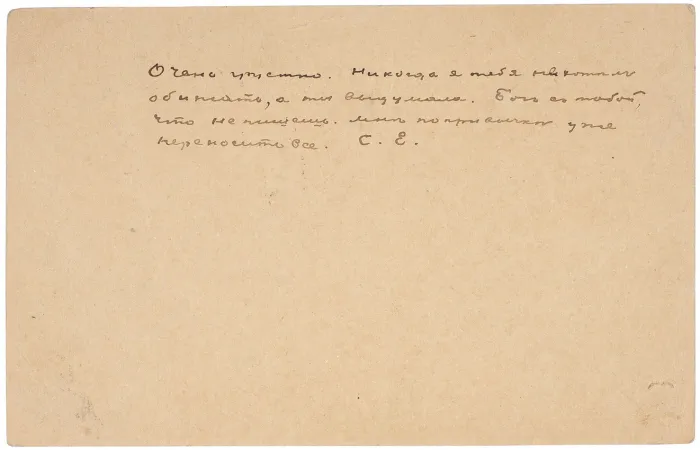 Очень грустно. Никогда я тебя не хотел
обижать, а ты выдумала. Богъ съ тобой,
что не пишешь. мнѣ по привычки уже
переносить все. С. Е.